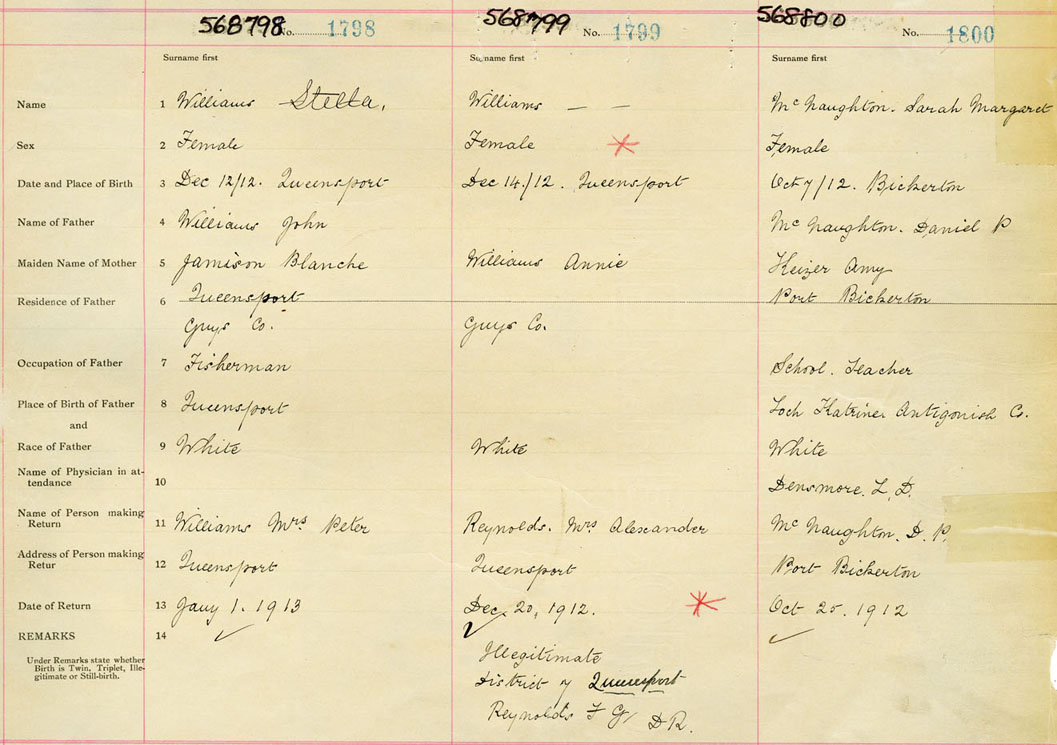 568798 No. 1798 568799 No. 1799 568800 No. 1800
Surname first Surname first Surname first
Name 1 Williams Stella, Williams — — Mc Naughton. Sarah Margaret
Sex 2 Female Female Female
Date and Place of Birth 3 Dec 12/12. Queensport Dec 14/12. Queensport Oct 7/12. Bickerton
Name of Father 4 Williams John Mc Naughton. Daniel P
Maiden Name of Mother 5 Jamison Blanche Williams Annie Keizer Amy
Residence of Father 6 Queensport Port Bickerton
Guys Co. Guys Co.
Occupation of Father 7 Fisherman School. Teacher
Place of Birth of Father 8 Queensport Loch Katrine Antigonish Co.
and
Race of Father 9 White White White
Name of Physician in at-
tendance 10 Densmore. L. D.
Name of Person making
Return 11 Williams Mrs Peter Reynolds. Mrs Alexander Mc Naughton. D. P.
Address of Person making
Retur 12 Queensport Queensport Port Bickerton
Date of Return 13 Jany 1. 1913 Dec. 20, 1912. Oct 25. 1912
REMARKS 14
Under Remarks state whether
Birth is Twin, Triplet, Ille-
gitimate or Still-birth.
Illegitimate
District of Queensport
Reynolds F G D R.